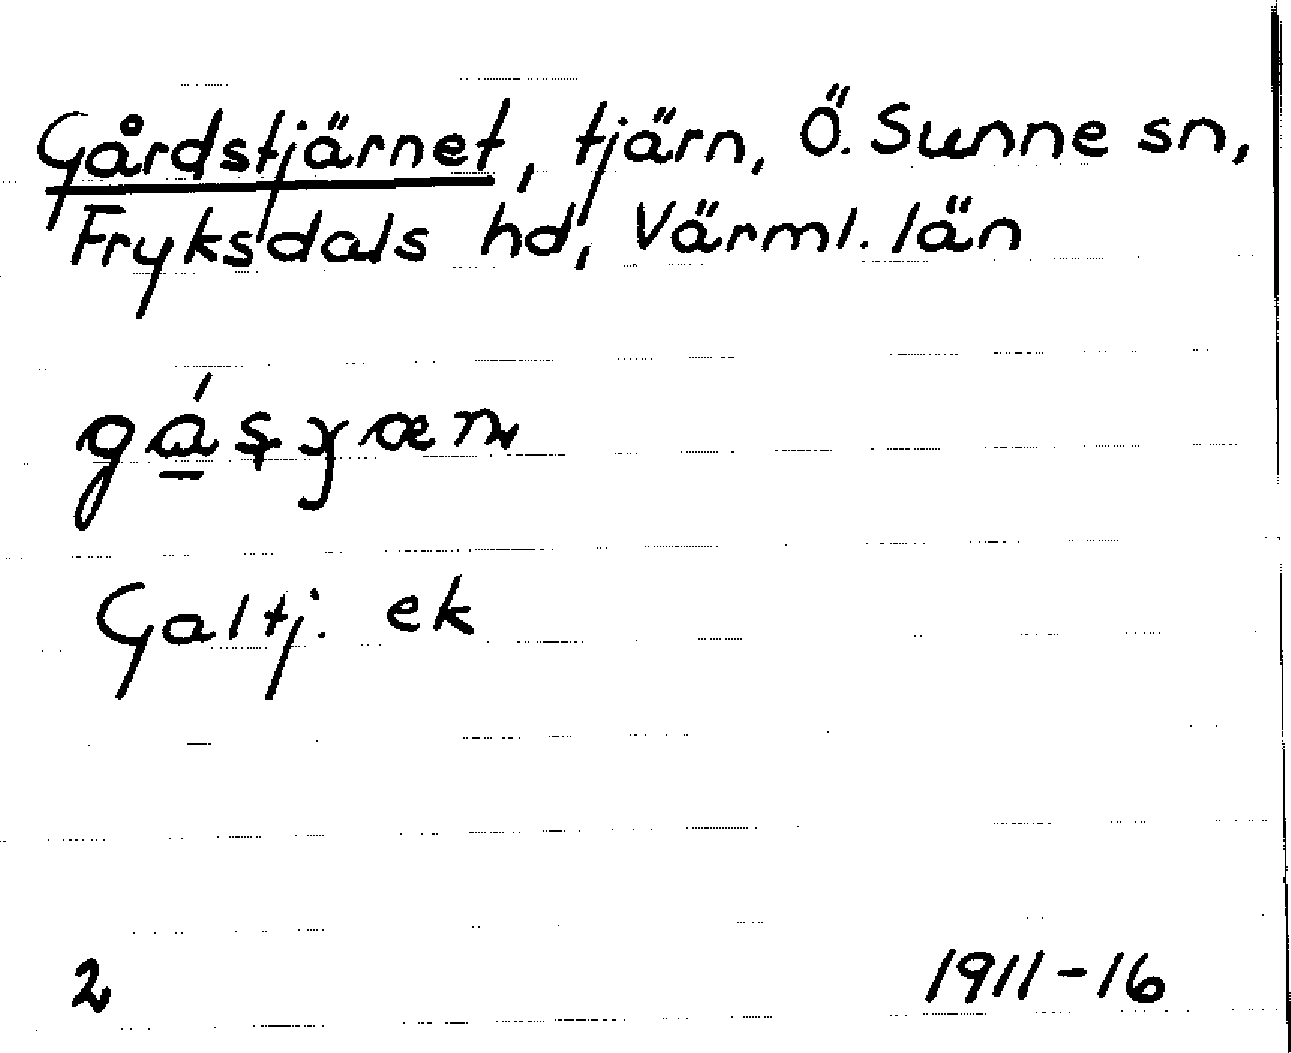 Gårdstjärnet, tjärn, Ö. Sunne sn,
Fryksdals hd, Värml. län
Galtj. ek
2 1911-16